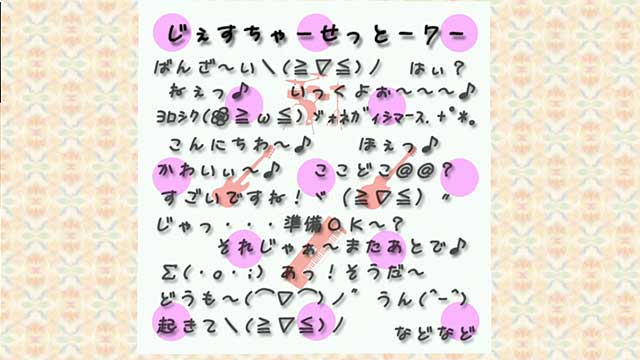 じぇすちゃーせっとー7ー
ばんざ～い＼(≧▽≦)ノ　はぃ？
ねぇっ♪　いっくよぉ～～～♪
ﾖﾛｼｸ(@≧ω≦)ｦﾞｫﾈｶﾞｨｼﾏｰｽ.+ﾟ*。
こんにちわ～♪　ほぇっ♪
かわいぃ～♪　ここどこ@@？
すごいですね！〃（≧▽≦）〃
じゃっ・・・準備ＯＫ～？
それじゃぁ～またあとで♪
Σ(・o・;) あっ！そうだ～
どうも～(⌒▽⌒)ノ゛　うん(^-^)
起きて＼(≧▽≦)ノ　などなど